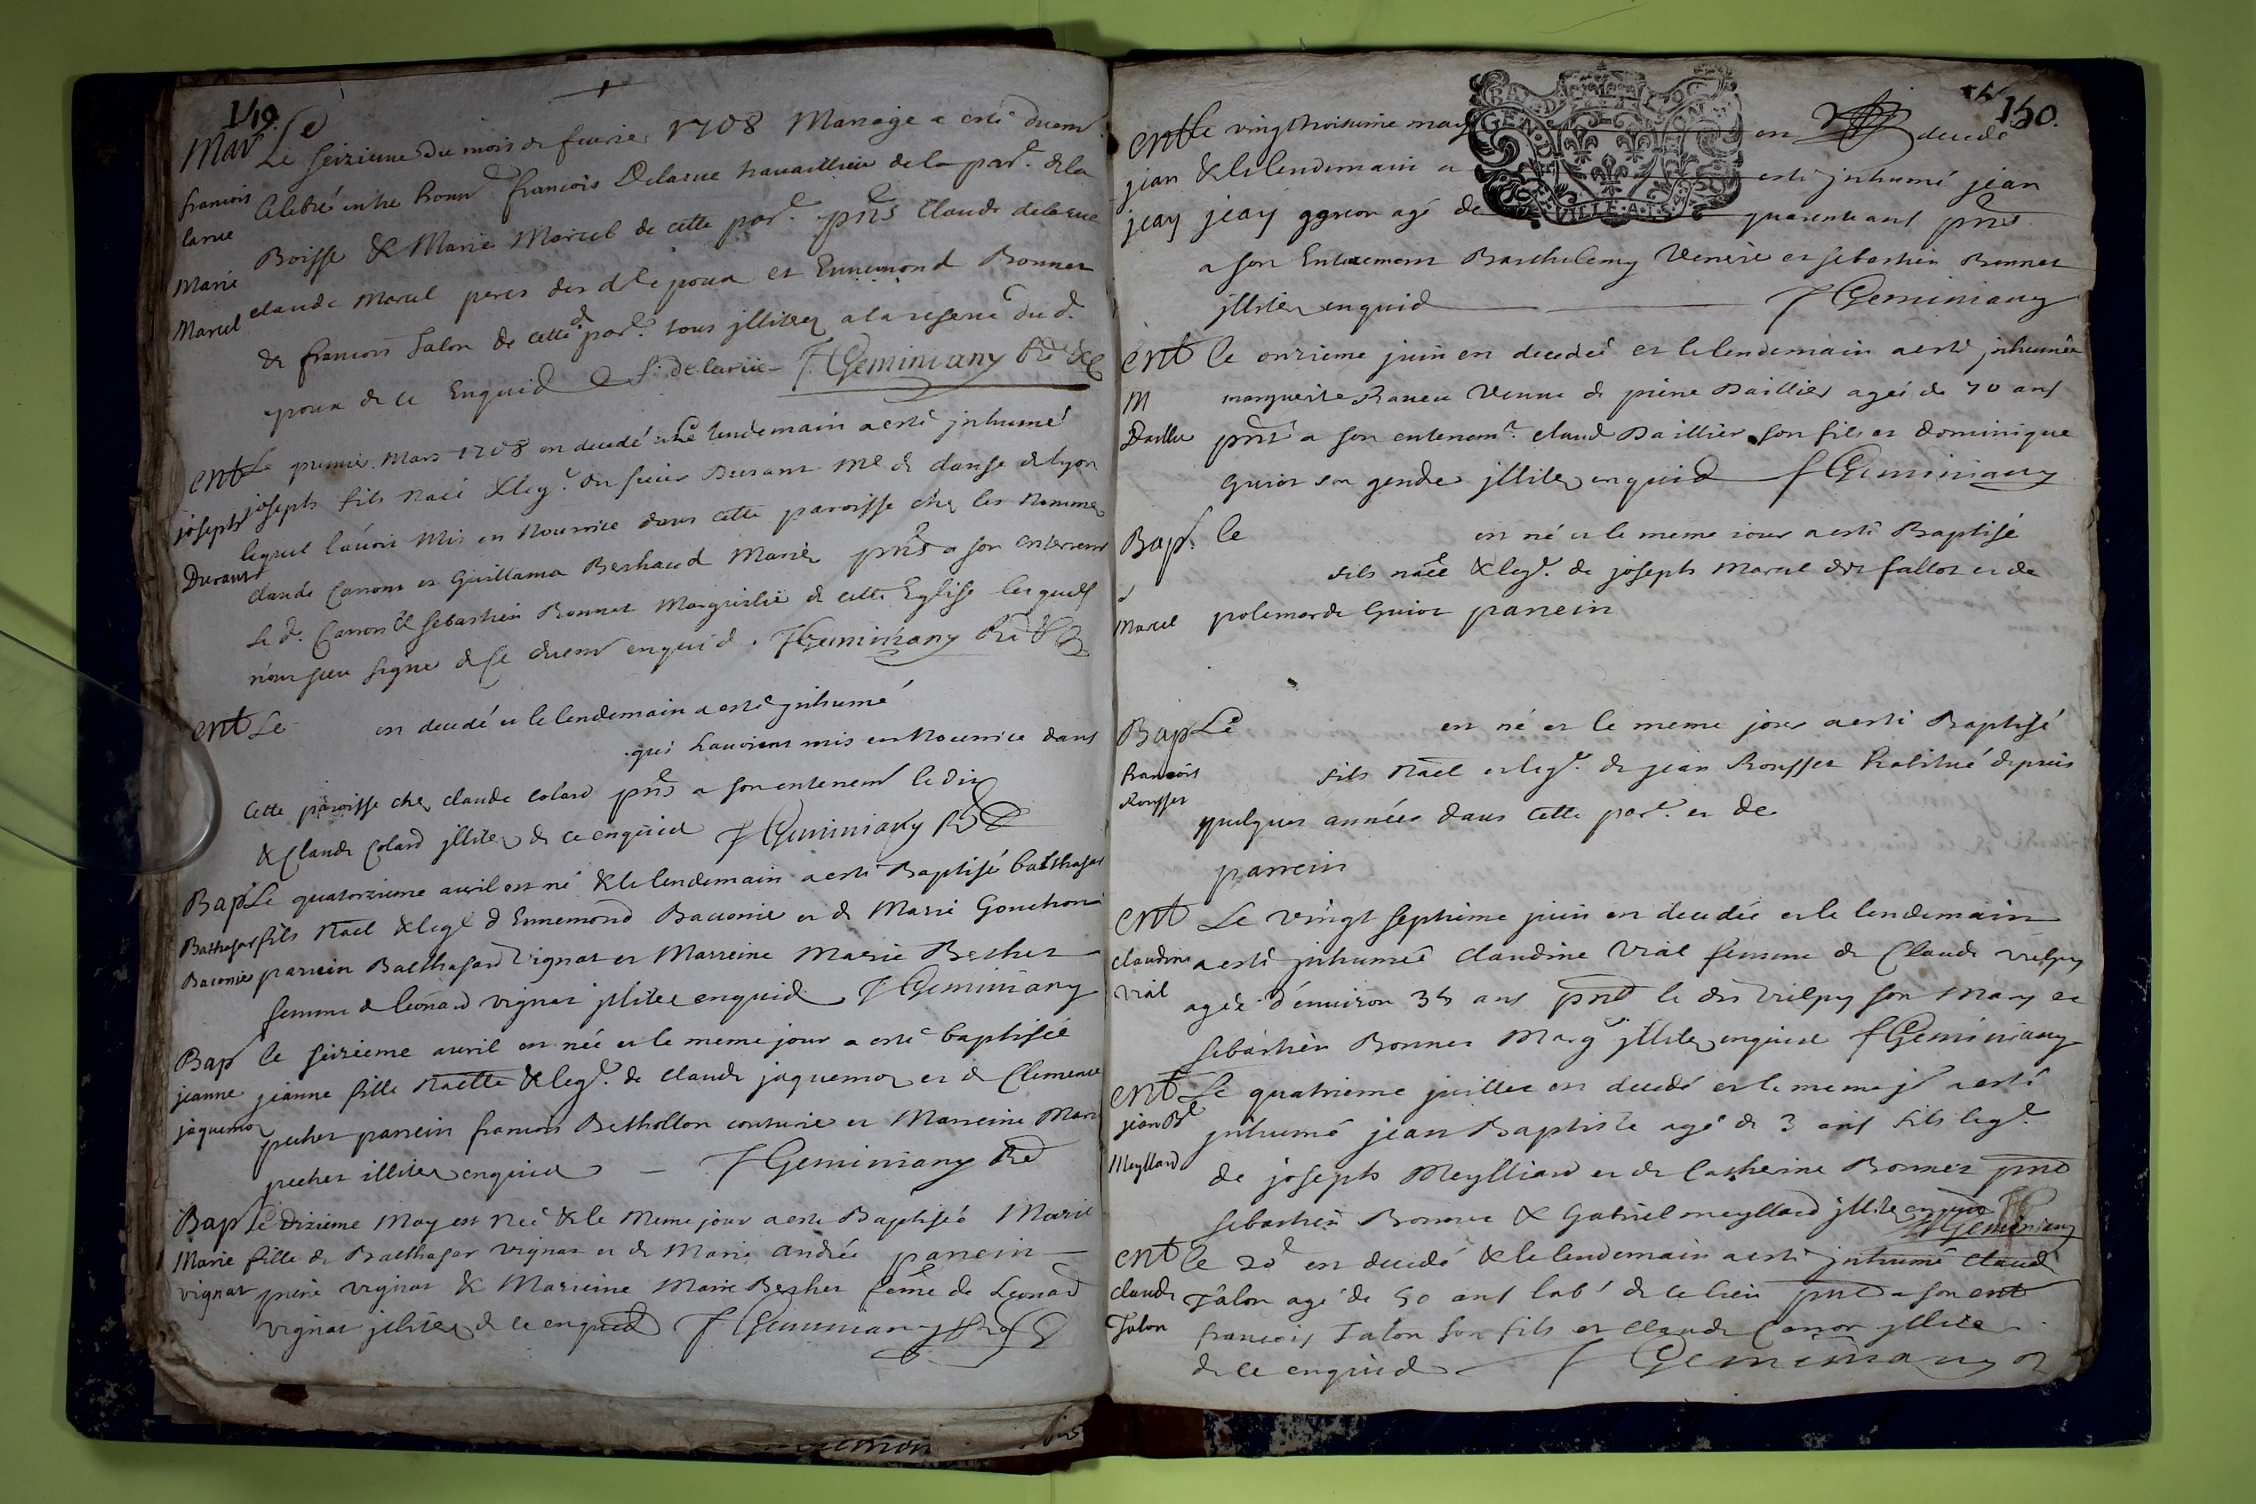 149.
Mar. Le
Le seizieme du mois de feurier 1708 Mariage a esté duem.
francois Celebré entre honn. francois Delarue travaillieur de la par. de la
larue Boisse & Marie Marcel de cette par. pñs Claude delarue
Marie claude Marcel peres des d. epoux et Ennemond Bonnet
Marcel & francois Talon de cette par. tous illiterez a la reserue du d.
poux de ce Enquid f. delarüe F Geminiany
ent Le premier Mars 1708 est decedé & le lendemain a esté inhumé
josephs josephs fils nael & leg. du sieur Durant Me de danse de lyon
Durant lequel l'auoit mis en Nourrice dans cette paroisse chez les nommez
claude Carron et Guillama Berhaud Mariez pñs a son enterrem
le d. Carron & sebastien Bonnet Marguilié de cette Eglise lesquels
n'ont sceu signer de ce duem enquid. F Geminiany
ent Le est decedé et le lendemain a esté inhumé
qui l'auoient mis en Nourrice dans
Cette paroisse chez claude Colard pñs a son enterrem le dit
& Claude Colard illiterez de ce enquid F Geminiany
Bap. Le quatorzieme auril est né & le lendemain a esté Baptisé balthasar
Balthasar fils Nael & leg. d Ennemond Baconie et de Marie Gonchon
Baconie parrein Balthasard Vignat et Marreine Marie Berhet
femme de leonard vignat illiterez enquid F Geminiany
Bap le seizieme auril est née et le meme jour a esté baptisée
jeanne jeanne fille Naelle & leg. de claude jaquemoz et de Clemence
jaquemoz pechet parrein francois Bethollon couturié et Marreine Marie
pechet illiterez enquid F Geminiany
Bap Le Dixieme May est Neé & le Meme jour a esté Baptiseé Marie
Marie fille de Balthasar vignat et de Marie andrée parrein
vignat pierre vignat & Marreine Marie Berhet feme de Leonard
vignat illiterez de ce enquid F Geminiany
150.
GEN. DE
VILLE.
ent Le vingt troisieme may est decedé
jean & le lendemain a esté inhumé jean
jean jean agé de quarente ans pñs
a son Enterrement Barthelemy Venerie et sebastien Bonnet
illiterez enquid F Geminiany
ent le onzieme juin est decedeé et le lendemain a esté inhumée
M marguerite veuue de pierre Daillier agée de 70 ans
Daillie pñs a son enterrem. claude Daillier son fils et dominique
Guiot son gendre illiterez enquid F Geminiany
Bap. le est né et le meme iour a esté Baptisé
fils naël & leg. de josephs Marcel dit fallot et de
Marcel polemarde Guiot parrein
Bap Le est né et le meme jour a esté Baptisé
francois fils Nael et leg. de jean Rousset habitué depuis
Rousset quelques années dans cette par. et de
parrein
ent Le vingt septieme juin est decedée et le lendemain
claudine a esté inhumeé claudine Vial femme de Claude vulpy
vial agée d'enuiron 35 ans pñs le dit vulpy son Mary et
sebastien Bonnet Marg illiterez enquid F Geminiany
ent Le quatrieme juillet est decedé et le meme j. a esté
jean B. inhumé jean Baptiste agé de 3 ans fils leg.
Meyllard de josephs Meylliard et de Catherine Bonnet pñs
sebastien Bonnet & Gabriel meyllard illiterez enquid F Geminiany
ent le 20 est decedé & le lendemain a esté inhumé claude
claude Talon agé de 50 ans lab. de ce lieu pñs a son ent
Talon francois Talon son fils et claude Carron illiterez
de ce enquid F Geminiany